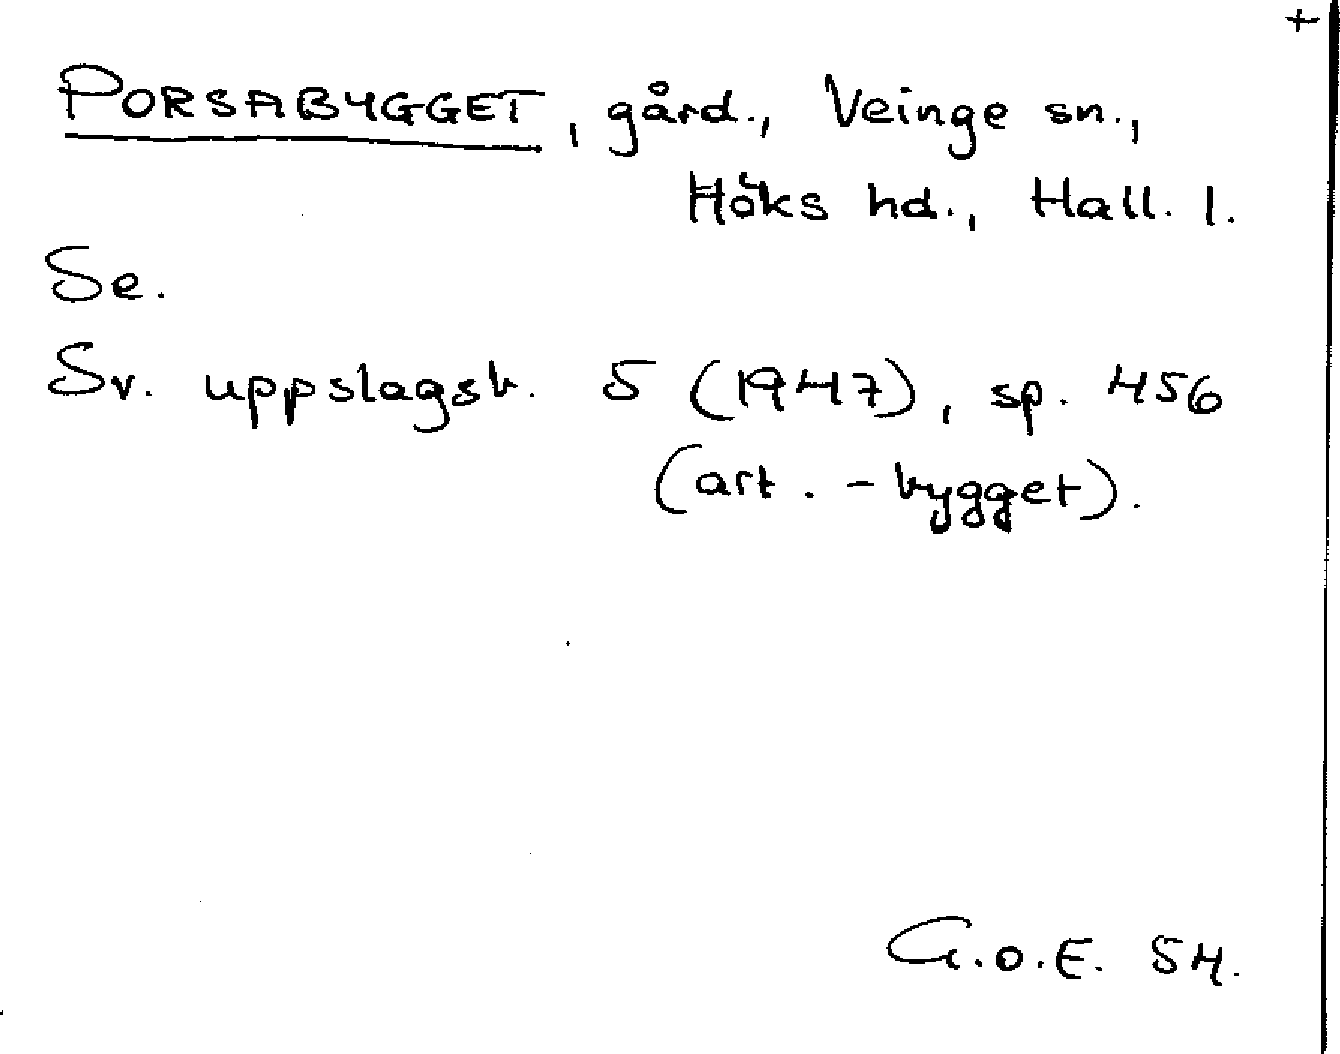 +
PORSABYGGET, gård., Veinge sn.,
Höks hd., Hall. l.
Se.
Sv. uppslagsb. 5 (1947), sp. 456
(art. -bygget).
G.O.E. 54.